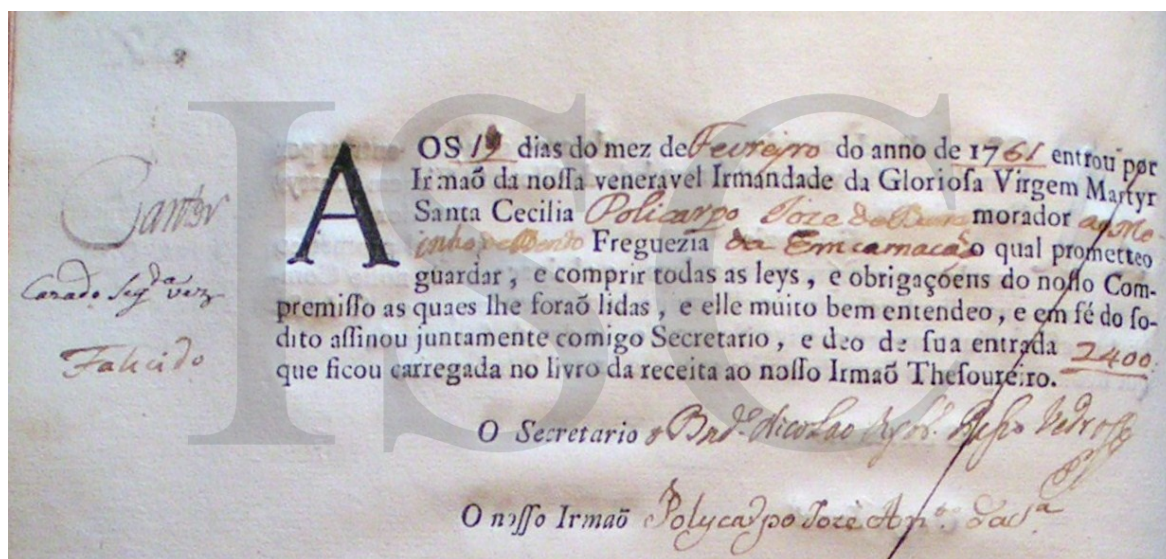 Cantor
Cazado Seg.ª vez
Falicido
AOS 19 dias do mez de Fevreyro do anno de 1761 entrou por
Irmaõ da noſſa veneravel Irmandade da Glorioſa Virgem Martyr
Santa Cecilia Policarpo Joze da morador
Freguezia da Emcarnacaõ o qual prometteo
guardar, e comprir todas as leys, e obrigaçoens do noſſo Com-
premiſſo as quaes lhe foraõ lidas, e elle muito bem entendeo, e em fé do ſo-
dito aſſinou juntamente comigo Secretario, e deo de ſua entrada 2400
que ficou carregada no livro da receita ao noſſo Irmaõ Theſoureiro.
O Secretario Nicolao
O noſſo Irmaõ Polycarpo Joze An.to da S.a
ISC